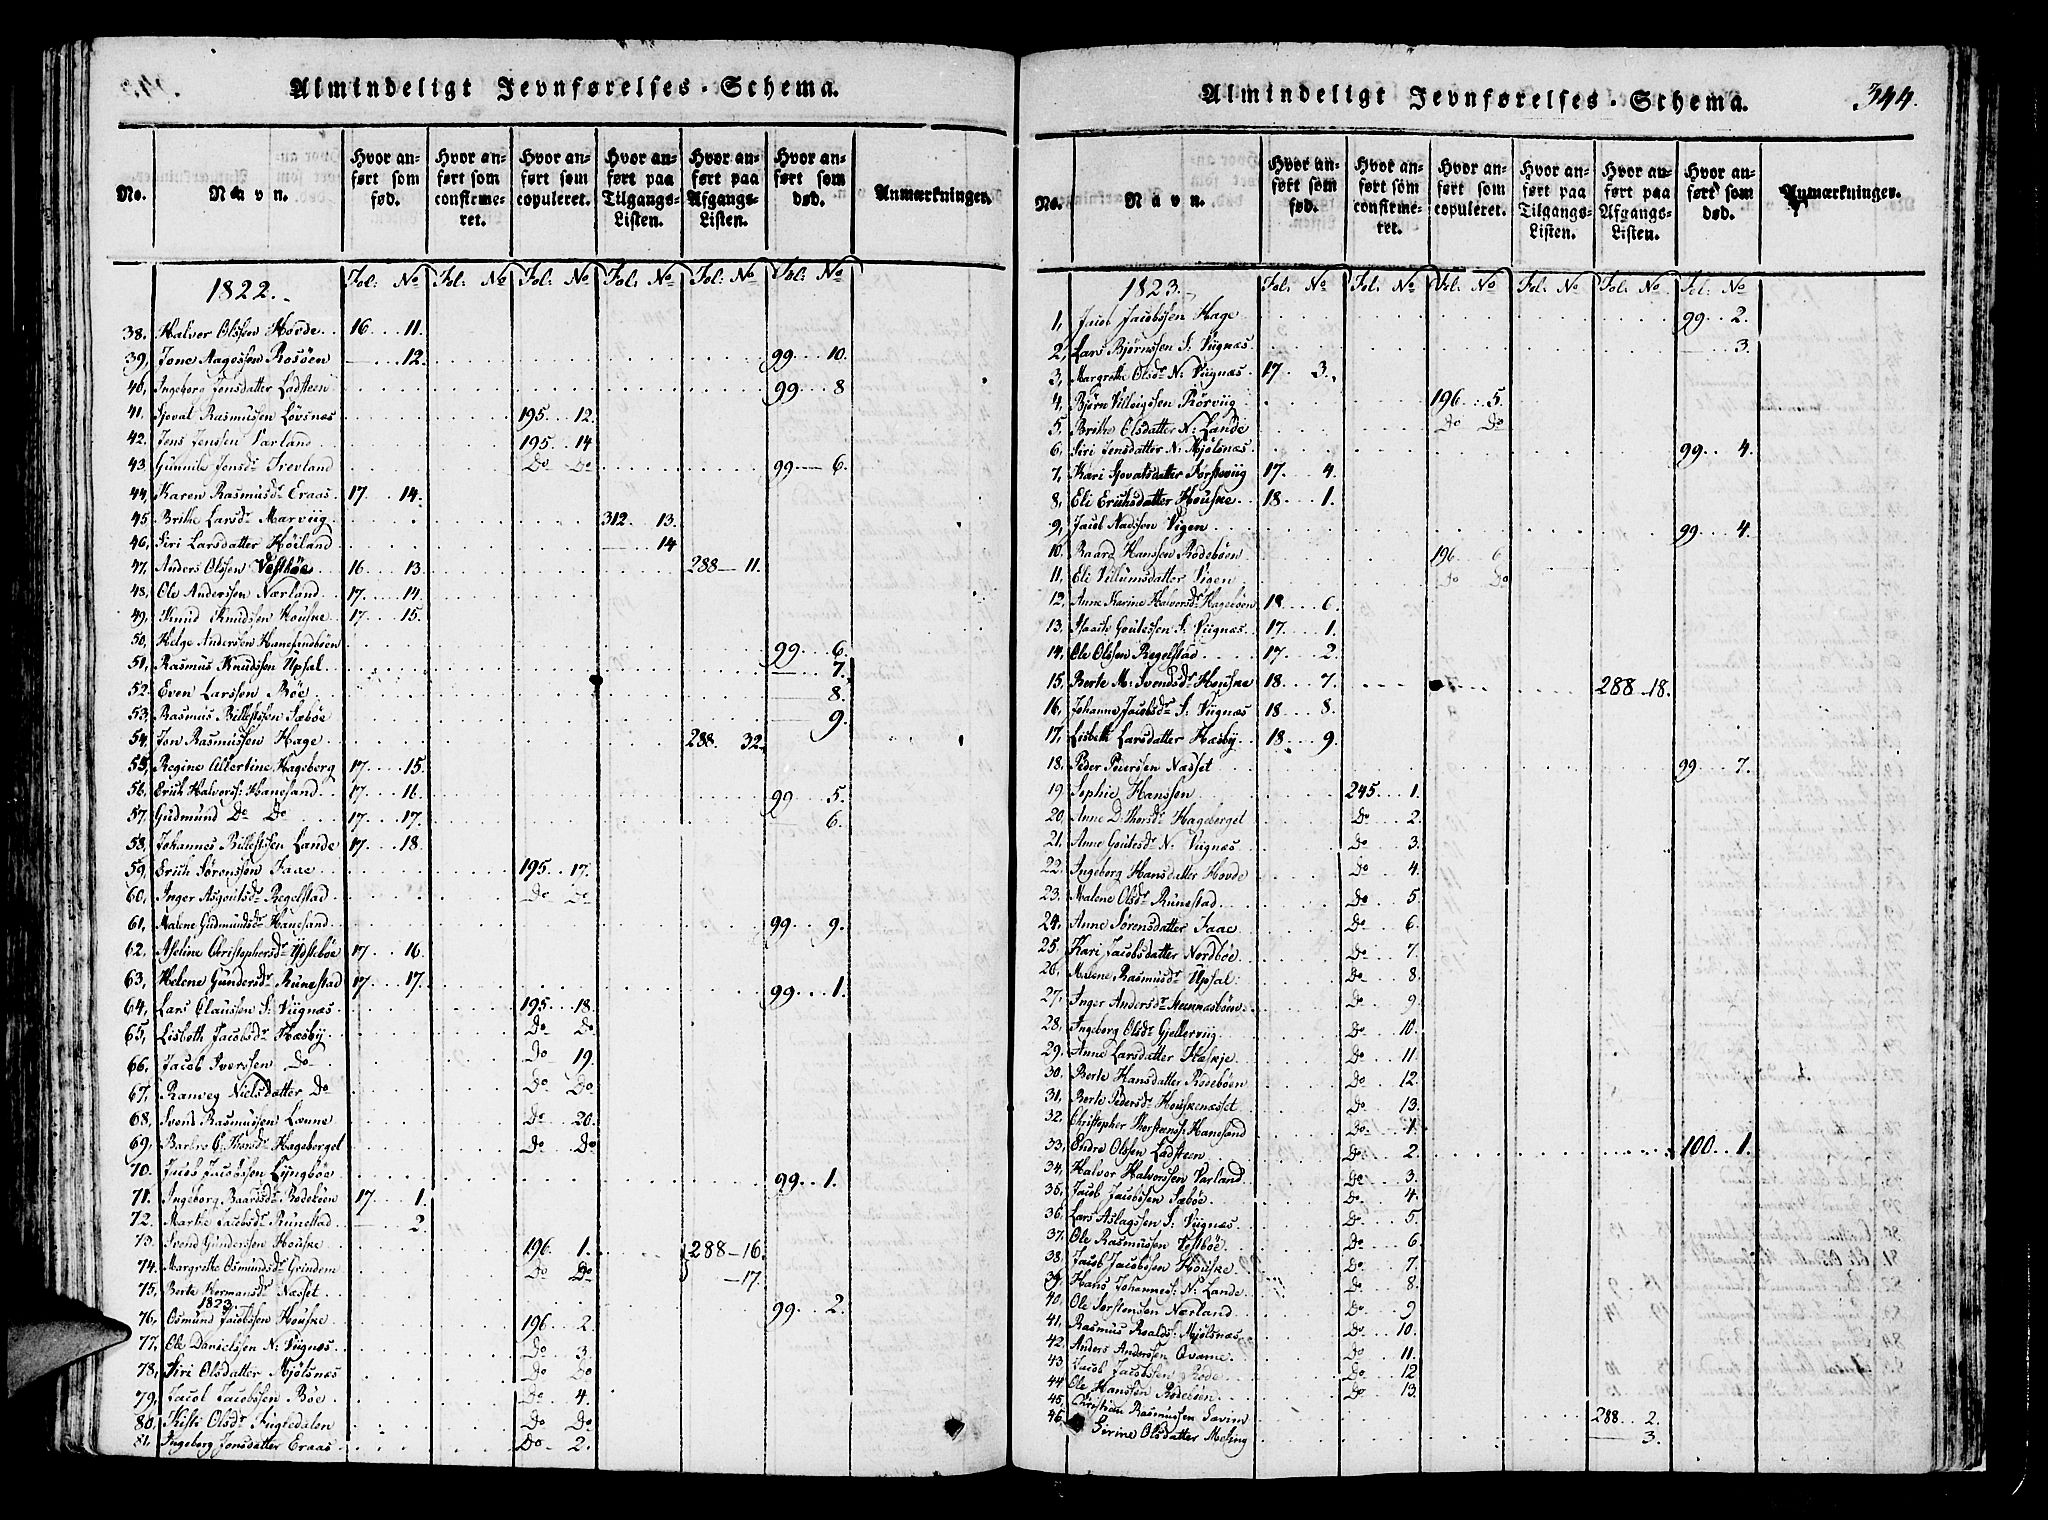 Almindeligt Jevnførelses-Schema.
No. Navn. Hvor anført som fød. Hvor anført som confirmeret. Hvor anført som copuleret. Hvor anført paa Tilgangs-Listen. Hvor anført paa Afgangs-Listen. Hvor anført som død. Anmærkninger.
1822. Fol: No Fol: No Fol: No Fol: No Fol: No Fol: No
38. Halvor Olssen Hovde 16 11.
39, Tone Aagessen Rosøen — 12. 99 10.
40, Ingeborg Jonsdatter Ladsteen 99 8
41. Sjovat Rasmussen Løvsnæs 195 12.
42. Jens Jenssen Varland 195 14
43. Gunnile Jonsdr Trevland Do Do 99 — 6.
44. Karen Rasmusdr Eraas 17 14.
45. Brithe Larsdr Marviig 312. 13.
46. Siri Larsdatter Høiland — 14
47. Anders Olssen Vestbøe 16 13. 288 — 11.
48. Ole Anderssen Nærland 17. 14.
49. Knud Knudssen Houske 17 15.
50. Helge Anderssen Hanesandbøen 99 6.
51. Rasmus Knudssen Upsal 7.
52. Even Larssen Bøe 8.
53. Rasmus Billestssen Sæbøe 9.
54. Jon Rasmussen Hage 288. 32.
55. Regine Albertine Hageberg 17 15.
56. Erich Halvorss: Hanesand 17 16. 99 5.
57. Gudmund Do Do 17 17. 6.
58. Johannes Billestsen Lande 17 18.
59. Erich Sørenssen Faae 195 17.
60. Inger Asgoutsdr Regelstad Do Do
61. Malene Gudmundsdr Hanesand 99 9.
62. Aseline Christophersdr Ydstebøe 17 16.
63, Helene Gundersdr Runestad 17 17. 99 1.
64, Lars Claussen S: Viignæs 195 18.
65, Lisbeth Jacobsdr Hæsby Do Do
66. Jacob Iverssen Do Do 19.
67. Ranveg Nielsdatter Do Do Do
68. Svend Rasmussen Lønne Do 20.
69. Barbro C. Thorsdr Hageberget Do Do
70. Jacob Jacobssen Lyngbøe 99 1.
71. Ingeborg Baardsdr Rødebøen 17 1.
72. Marthe Jacobsdr Runestad — 2.
73. Svend Gunderssen Houske 196 1. 288 — 16.
74. Margrethe Osmundsdr Grindem Do Do — 17.
75. Berte Hermansdr Næsset 99 2.
1823.
76, Osmund Jacobssen Houske 196 2.
77. Ole Danielssen N: Viignæs Do 3.
78, Siri Olsdatter Mjølsnæs Do Do
79. Jacob Jacobssen Bøe Do 4.
80. Kisti Olsdr Fugledalen Do Do
81, Ingeborg Jonsdatter Eraas Do 2.
Almindeligt Jevnførelses-Schema. 344.
No. Navn. Hvor anført som fød. Hvor anført som confirmeret. Hvor anført som copuleret. Hvor anført paa Tilgangs-Listen. Hvor anført paa Afgangs-Listen. Hvor anført som død. Anmærkninger.
1823. Fol: No Fol: No Fol: No Fol: No Fol: No Fol: No
1, Jacob Jacobssen Hage 99 2.
2, Lars Bjørnssen S: Viignæs — 3.
3, Margrethe Olsdr N: Viignæs 17 3.
4, Bjørn Villeigssen Rørviig 196 5.
5. Brithe Olsdatter N: Lande Do Do
6. Siri Jonsdatter N: Mjølsnæs 99 4.
7, Kari Sjovatsdatter Forsteviig 17 4.
8, Eli Erichsdatter Houske 18 1.
9, Jacob Nadssen Vigen 99 4.
10. Baard Hanssen Rødebøen 196 6
11. Eli Villumsdatter Vigen Do Do
12. Anne Karine Halvorsdr Hagebøen 18 6.
13. Isaach Goutessen S: Viignæs 17 1.
14. Ole Olssen Regelstad 17 2.
15. Berte M: Svendsdr Houske 18 7. 288 — 18.
16, Johanne Jacobsdr S: Viignæs 18 8.
17. Lisbeth Larsdatter Hæsby 18 9.
18. Peder Peterssen Næsset 99 7.
19 Sophie Hanssen 245 1.
20. Anne D: Thorsdr Hageberget Do 2.
21. Anne Goutesdr N: Viignæs Do 3.
22. Ingeborg Hansdatter Hovde Do 4.
23. Malene Olsdr Runestad Do 5.
24. Anne Sørensdatter Faae Do 6.
25. Kari Jacobsdatter Nordbøe Do 7.
26. Malene Rasmusdr Upsal Do 8.
27. Inger Andersdr Mannæsbøen Do 9.
28. Ingeborg Olsdr Gjellerviig Do 10.
29. Anne Larsdatter Hæskje Do 11.
30. Berte Hansdatter Rødebøen Do 12.
31. Berte Pedersdr Houskenæsset Do 13.
32. Christopher Thorstenss: Hanesand Do 1.
33. Endre Olssen Ladsteen Do 2. 100 1.
34, Halvor Halvorssen Varland Do 3.
35, Jacob Jacobssen Sæbøe Do 4.
36. Lars Aslagssen S: Viignæs Do 5.
37. Ole Rasmussen Vestbøe Do 6
38. Jacob Jacobssen Houske Do 7.
39. Hans Johanness: N: Lande Do 8.
40. Ole Torstensen Nærland Do 9
41. Rasmus Roalds: Mjølsnæs Do 10.
42. Anders Anderssen Qvame Do 11.
43 Jacob Jacobssen Røde Do 12
44 Ole Hanssen Rødebøen Do 13.
45. Christian Rasmussen Savim 288 2.
46 Serine Olsdatter Meling — 3.